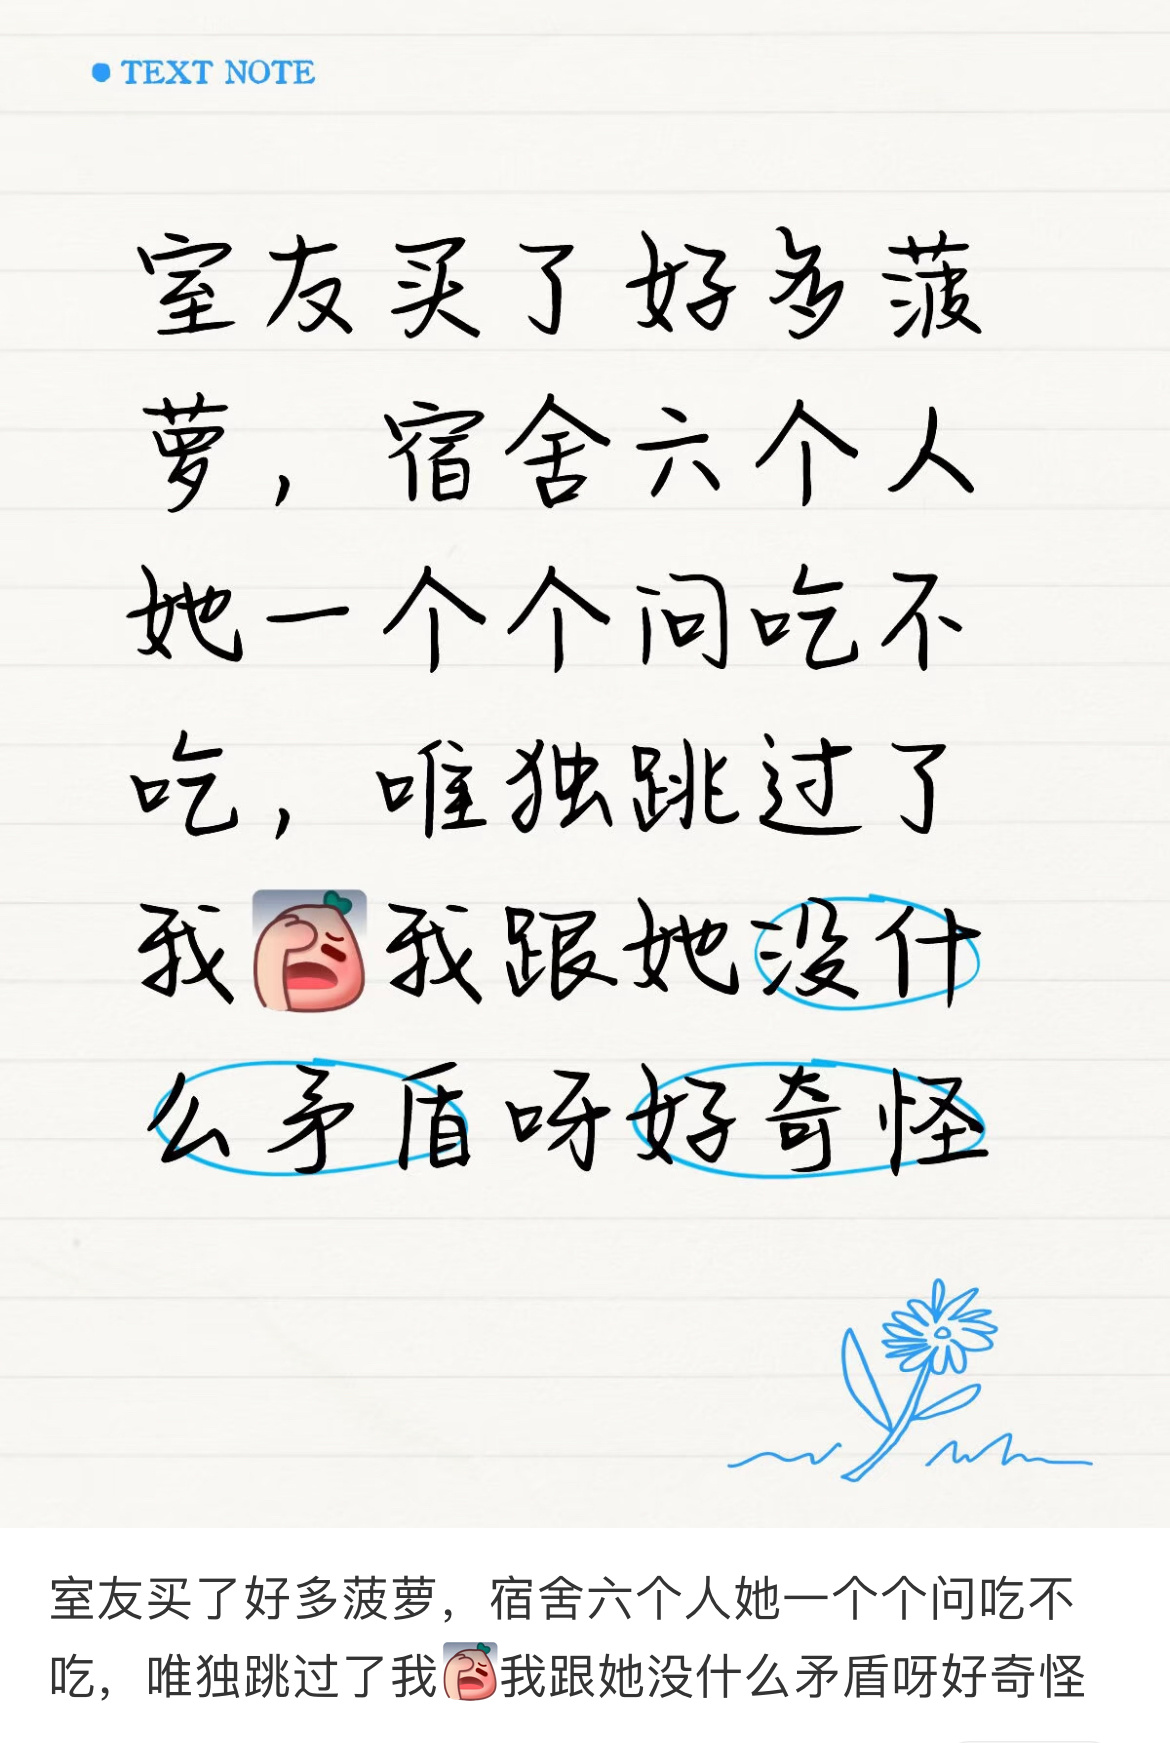 TEXT NOTE
室友买了好多菠
萝，宿舍六个人
她一个个问吃不
吃，唯独跳过了
我我跟她没什
么矛盾呀好奇怪
室友买了好多菠萝，宿舍六个人她一个个问吃不
吃，唯独跳过了我我跟她没什么矛盾呀好奇怪